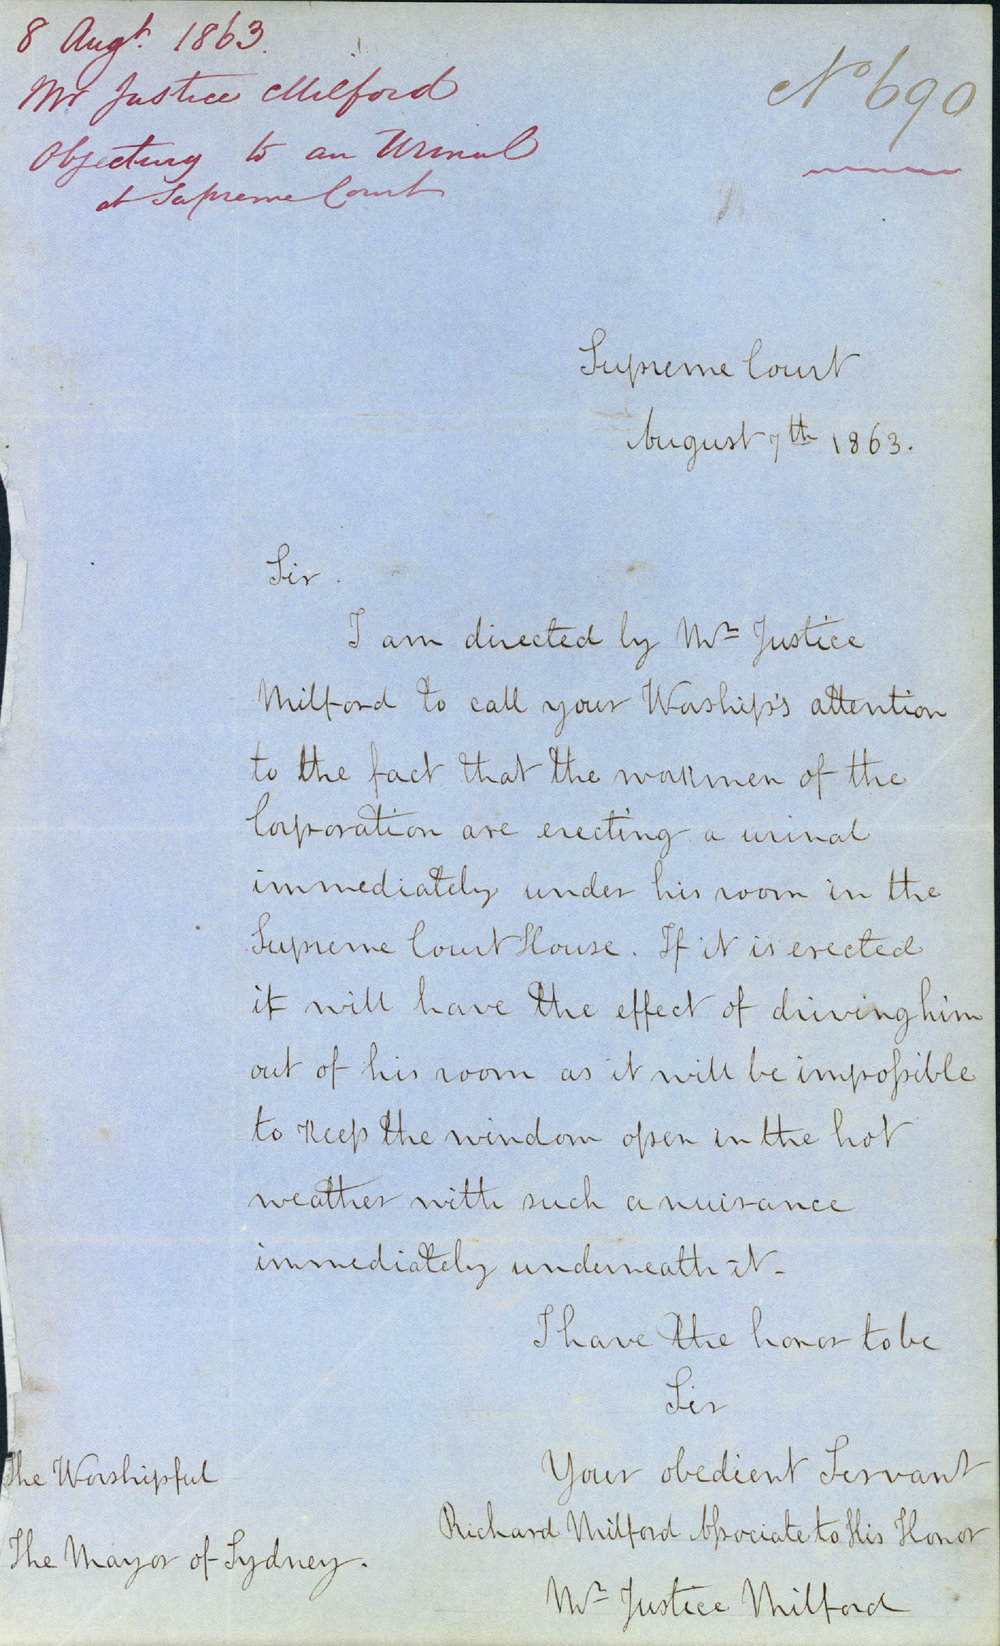 8 Augt. 1863.
Mr Justice Milford
Objecting to an Urinal
at Supreme Court
No 690
Supreme Court
August 7th 1863.
Sir.
I am directed by Mr Justice
Milford to call your Worship's attention
to the fact that the workmen of the
Corporation are erecting a urinal
immediately under his room in the
Supreme Court House. If it is erected
it will have the effect of driving him
out of his room as it will be impossible
to keep the window open in the hot
weather with such a nuisance
immediately underneath it -
I have the honor to be
Sir
Your obedient Servant
Richard Milford Associate to His Honor
Mr Justice Milford
The Worshipful
The Mayor of Sydney.